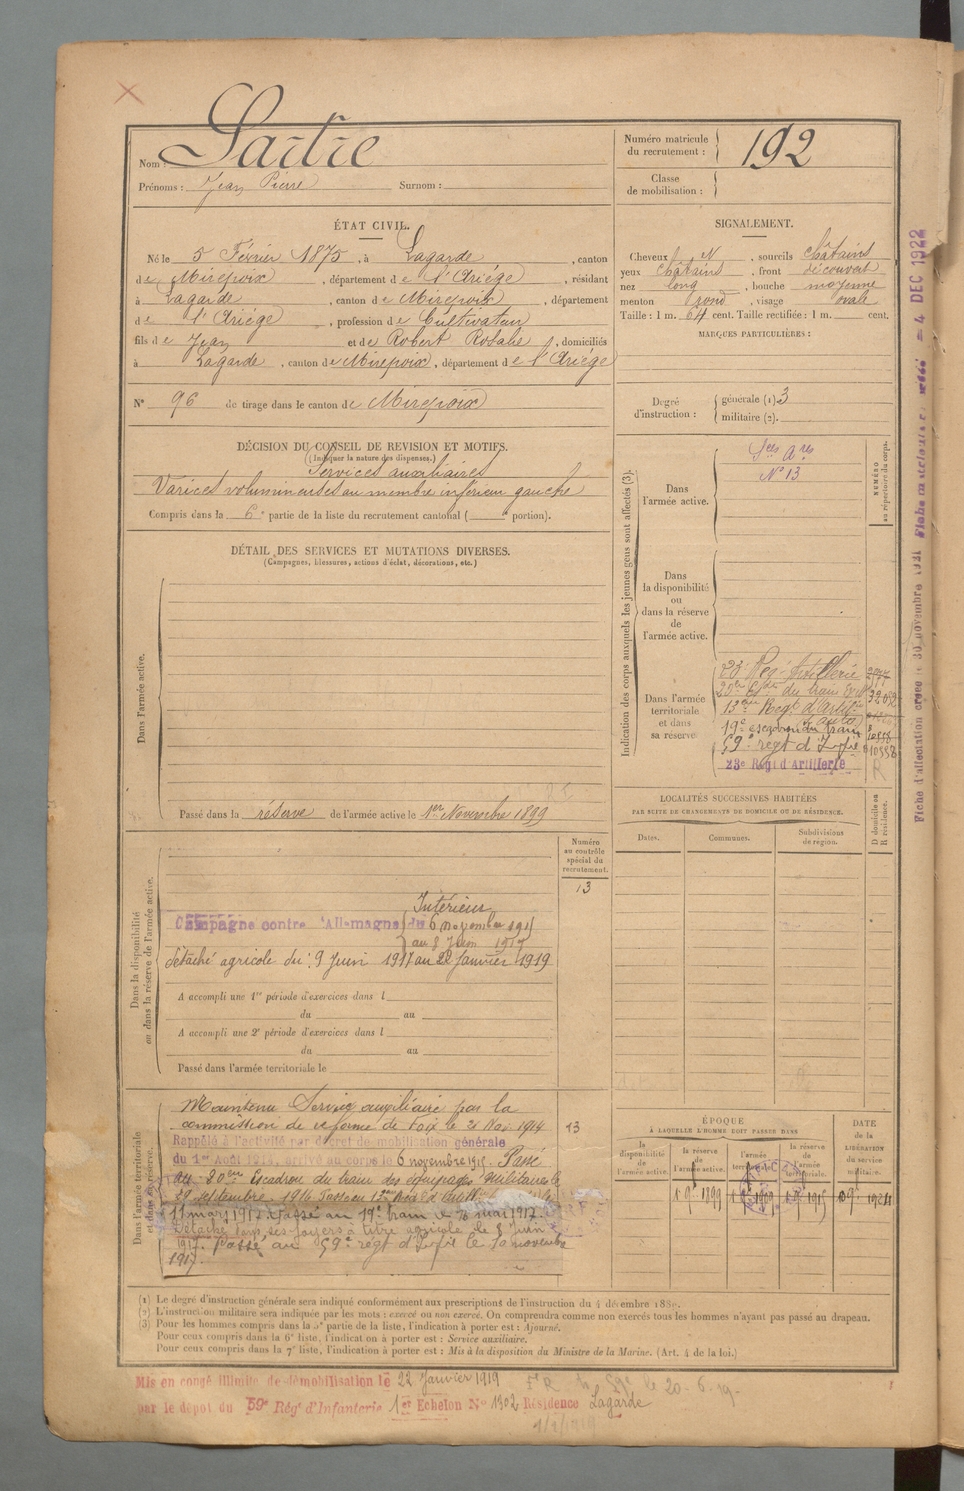 Nom : Sartre
Prénoms : Jean Pierre Surnom :
Numéro matricule du recrutement : 192
Classe de mobilisation :
ÉTAT CIVIL.
Né le 5 Février 1875, à Lagarde, canton
de Mirepoix, département de l'Ariège, résidant
à Lagarde, canton de Mirepoix, département
de l'Ariège, profession de Cultivateur
fils de Jean et de Robert Rosalie, domiciliés
à Lagarde, canton de Mirepoix, département de l'Ariège
N° 96 de tirage dans le canton de Mirepoix
SIGNALEMENT.
Cheveux N, sourcils châtains
yeux châtains, front découvert
nez long, bouche moyenne
menton rond, visage ovale
Taille : 1 m. 64 cent. Taille rectifiée : 1 m. cent.
MARQUES PARTICULIÈRES :
Degré d'instruction : générale (1) 3
militaire (2).
DÉCISION DU CONSEIL DE REVISION ET MOTIFS.
(Indiquer la nature des dispenses.)
Services auxiliaires
Varices volumineuses au membre inférieur gauche
Compris dans la 6e partie de la liste du recrutement cantonal ( portion).
DÉTAIL DES SERVICES ET MUTATIONS DIVERSES.
(Campagnes, blessures, actions d'éclat, décorations, etc.)
Dans l'armée active.
Passé dans la réserve de l'armée active le 1er Novembre 1899
Indication des corps auxquels les jeunes gens sont affectés (3).
NUMÉRO au répertoire du corps.
Dans l'armée active.
N° 13
Dans la disponibilité ou dans la réserve de l'armée active.
Dans l'armée territoriale et dans sa réserve
20e Esc du train
19e escadron du train
59e regt d'Infie
23e Régt d'Artillerie
R
LOCALITÉS SUCCESSIVES HABITÉES
PAR SUITE DE CHANGEMENTS DE DOMICILE OU DE RÉSIDENCE.
Dates.
Communes.
Subdivisions de région.
D domicile ou R résidence.
Dans la disponibilité ou dans la réserve de l'armée active.
Numéro au contrôle spécial du recrutement.
13
Intérieur
Campagne contre l'Allemagne du 6 Novembre 1915
au 8 Juin 1917
détaché agricole du 9 Juin 1917 au 22 Janvier 1919
A accompli une 1re période d'exercices dans l
du au
A accompli une 2e période d'exercices dans l
du au
Passé dans l'armée territoriale le
Dans l'armée territoriale et dans sa réserve.
13
Maintenu Service auxiliaire par la
commission de réforme de Foix le 21 Nov 1914
Rappelé à l'activité par décret de mobilisation générale
du 1er Août 1914, arrivé au corps le 6 novembre 1915. Passé
au 20eme Escadron du train des équipages militaires le
29 septembre 1916 Passé au 13e
11 mars 1917. Passé au 19e train le 20 mai 1917.
Détaché dans ses foyers à titre agricole le 8 Juin
1917. Passé au 59e regt d'Infie le 10 novembre
1917.
ÉPOQUE
À LAQUELLE L'HOMME DOIT PASSER DANS
la disponibilité de l'armée active.
la réserve de l'armée active.
l'armée territoriale.
la réserve de l'armée territoriale.
DATE de la LIBÉRATION du service militaire.
(1) Le degré d'instruction générale sera indiqué conformément aux prescriptions de l'instruction du 4 décembre 1889.
(2) L'instruction militaire sera indiquée par les mots : exercé ou non exercé. On comprendra comme non exercés tous les hommes n'ayant pas passé au drapeau.
(3) Pour les hommes compris dans la 5e partie de la liste, l'indication à porter est : Ajourné.
Pour ceux compris dans la 6e liste, l'indication à porter est : Service auxiliaire.
Pour ceux compris dans la 7e liste, l'indication à porter est : Mis à la disposition du Ministre de la Marine. (Art. 4 de la loi.)
Mis en congé illimité de démobilisation le 22 Janvier 1919
par le dépôt du 59e Régt d'Infanterie 1er Echelon N° 1302 Résidence Lagarde
Fiche d'affectation créée le 30 novembre 1921
4 DEC 1922